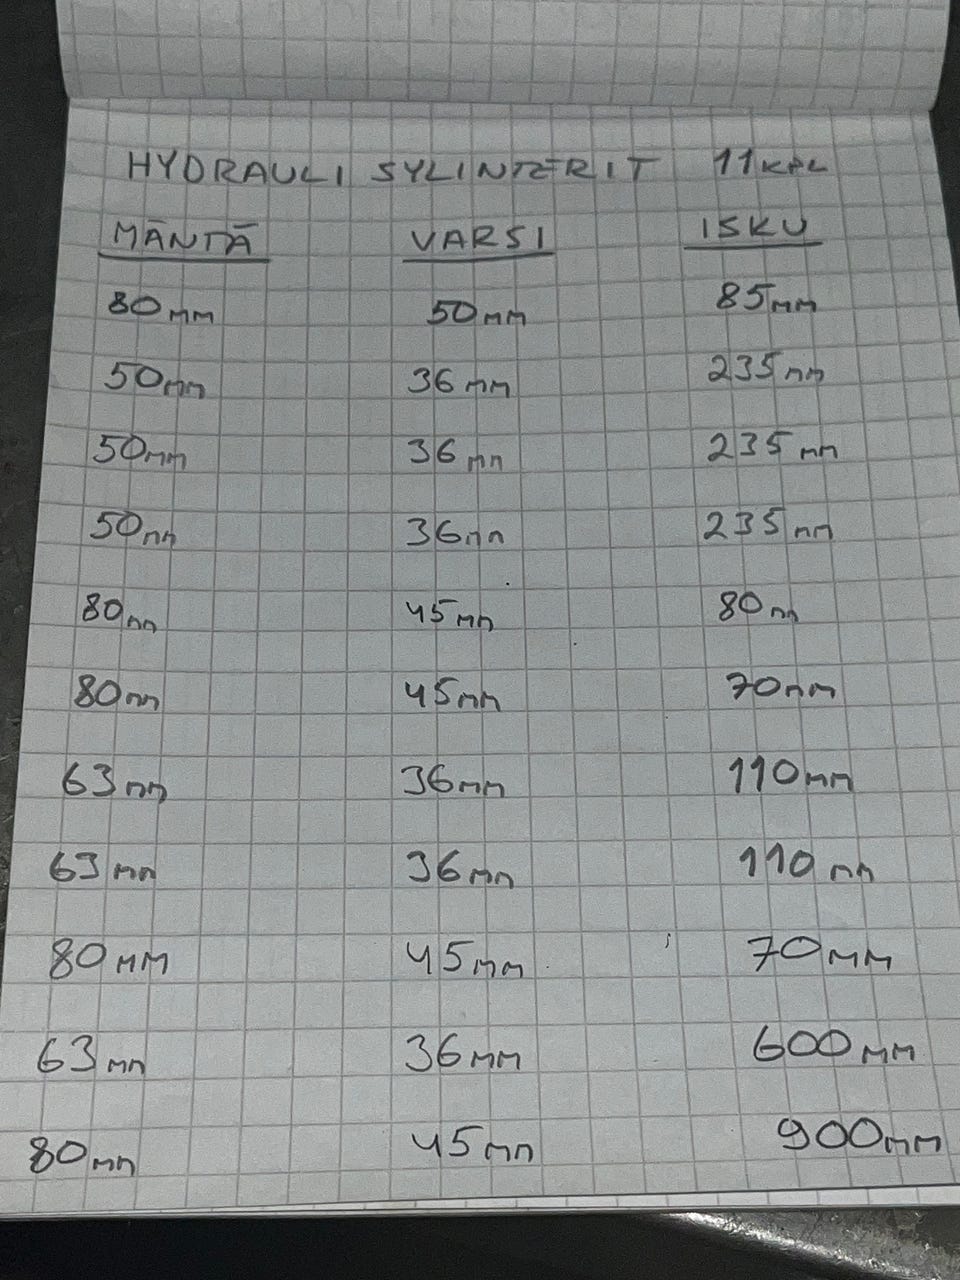 HYDRAULI SYLINTERIT 11KPL
MÄNTÄ VARSI ISKU
80mm 50mm 85mm
50mm 36mm 235mm
50mm 36mm 235mm
50mm 36mm 235mm
80mm 45mm 80mm
80mm 45mm 70mm
63mm 36mm 110mm
63mm 36mm 110mm
80mm 45mm 70mm
63mm 36mm 600mm
80mm 45mm 900mm